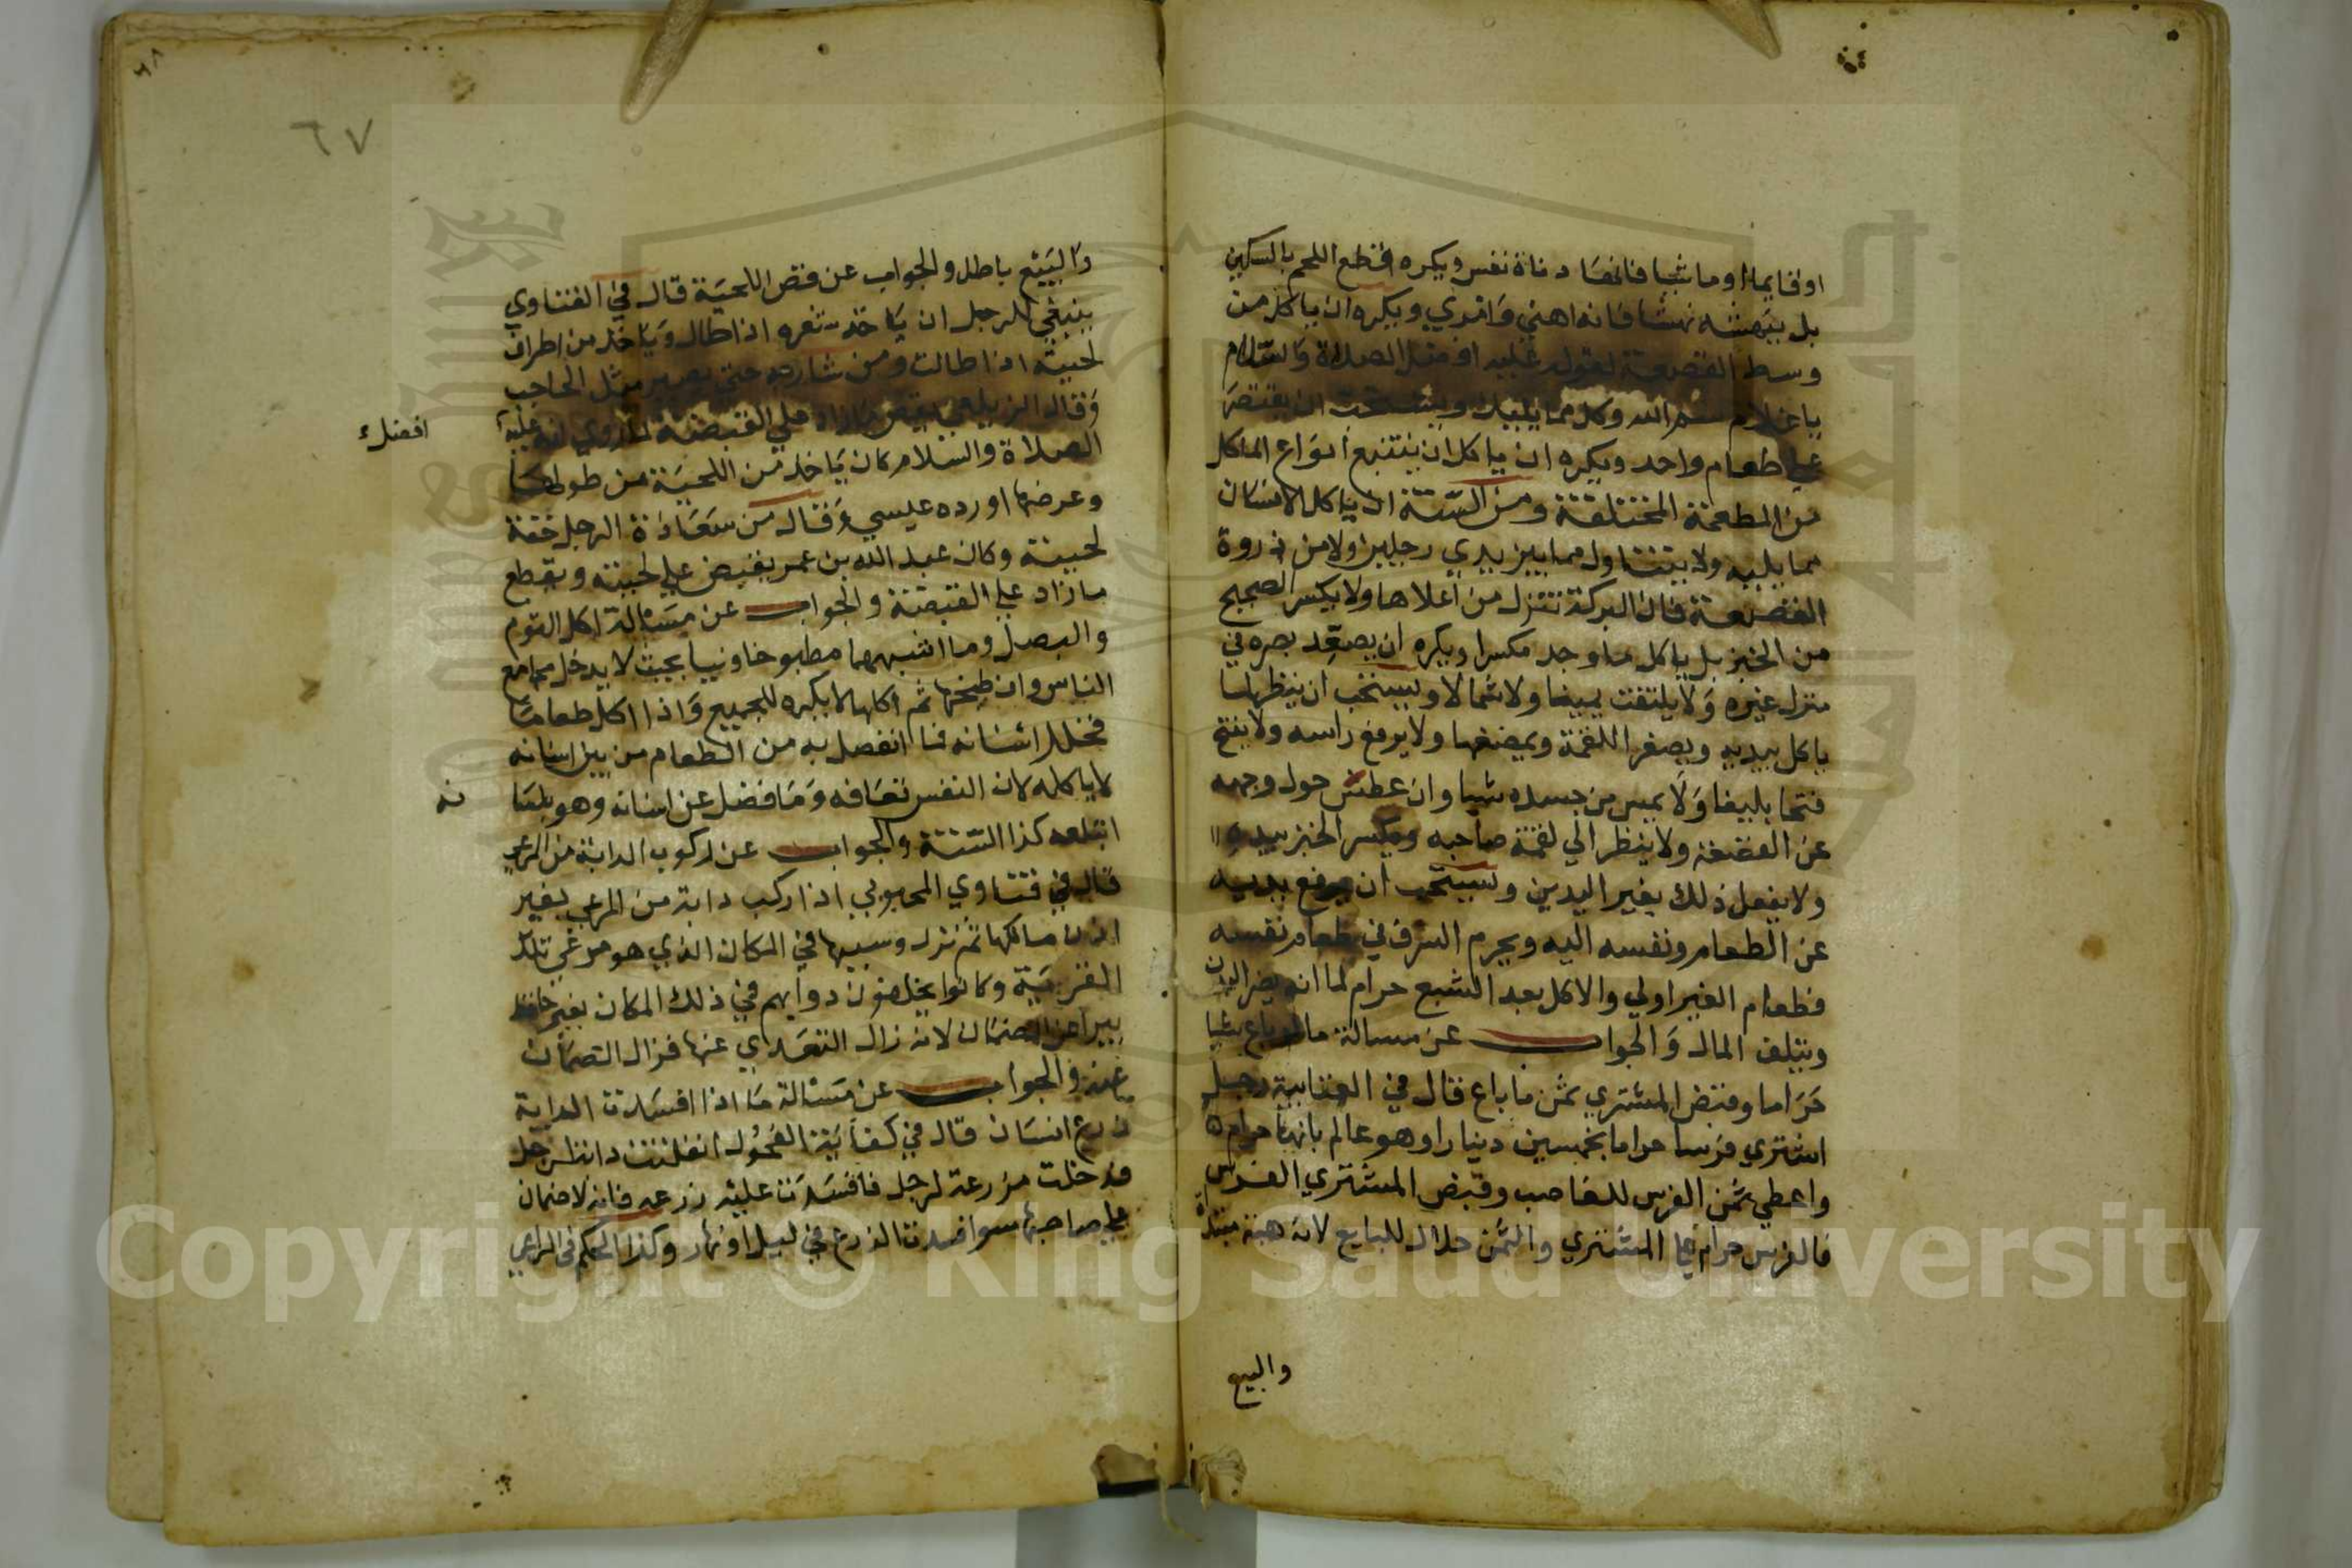 او قايما او ماشيا فانها دناة نفس ويكره قطع اللحم بالسكين
بل ينهشه نهشا فانه اهني وامري ويكره ان ياكل من
وسط القصعة لقوله عليه افضل الصلاة والسلام
يا غلام سم الله وكل مما يليك ويستحب ان يقتصر
علي طعام واحد ويكره ان ياكل ان يتتبع انواع الماكل
من المطعمة المختلفة ومن السنة ان ياكل الانسان
مما يليه ولا يتناول مما بين يدي رجلين ولا من ذروة
القصعة فان البركة تنزل من اعلاها ولا يكسر الصحيح
من الخبز بل ياكل ما وجد مكسرا ويكره ان يصعد بصره في
منزل غيره ولا يلتفت يمينا ولا شمالا ويستحب ان ينظر لما
ياكل بيديه ويصغر اللقمة ويمضغها ولا يرفع راسه ولا يفتح
فتحا بليغا ولا يمس من جسده شيا وان عطش حول وجهه
عن القصعة ولا ينظر الي لقمة صاحبه ويكسر الخبز بيديه
ولا يفعل ذلك بغير اليدين ويستحب ان يرفع يديه
عن الطعام ونفسه اليه ويحرم السرف في طعام نفسه
فطعام الغير اولي والاكل بعد الشبع حرام لما انه يضر البدن
ويتلف المال والجواب عن مسالة ما لو باع شيا
حراما وقبض المشتري ثمن ما باع قال في العتابية رجل
اشتري فرسا حراما بخمسين دينارا وهو عالم بانها حرام
واعطي ثمن الفرس للغاصب وقبض المشتري الفرس
فالفرس حرام علي المشتري والثمن حلال للبايع لانه هبة مبتداة
والبيع
٦٧
والبيع باطل والجواب عن قص اللحية قال في الفتاوي
ينبغي للرجل ان ياخذ شعره اذا طال وياخذ من اطراف
لحيته اذا طالت ومن شاربه حتي يصير مثل الحاجب
وقال الزيلعي يقص ما زاد علي القبضة لما روي انه عليه
افضل
الصلاة والسلام كان ياخذ من اللحية من طولها
وعرضها اورده عيسي وقال من سعادة الرجل خفة
لحيته وكان عبد الله بن عمر يقبض علي لحيته ويقطع
ما زاد علي القبضة والجواب عن مسالة اكل الثوم
والبصل وما اشبههما مطبوخا ونيا بحيث لا يدخل مجامع
الناس وان طبخها ثم اكلها لا يكره للجميع واذا اكل طعاما
فخلل اسنانه فما انفصل به من الطعام من بين اسنانه
لا ياكله لان النفس تعافه وما فضل عن اسنانه وهو بلسا
نه
ابتلعه كذا السنة والجواب عن ركوب الدابة من المرعي
قال في فتاوي المحبوبي اذا ركب دابة من المرعي بغير
اذن مالكها ثم نزل وسيبها في المكان الذي هو مرعي تلك
القرية وكانوا يخلفون دوابهم في ذلك المكان بغير حافظ
يبرا عن الضمان لانه زال التعدي عنها فزال الضمان
عنه والجواب عن مسالة ما اذا افسدت الدابة
زرع انسان قال في كفاية الفحول انفلتت دابة لرجل
فدخلت مزرعة لرجل فافسدت عليه زرعه فانه لا ضمان
علي صاحبها سوا افسدت الزرع في ليل او نهار وكذا الحكم في الراعي
Copyright © King Saud University